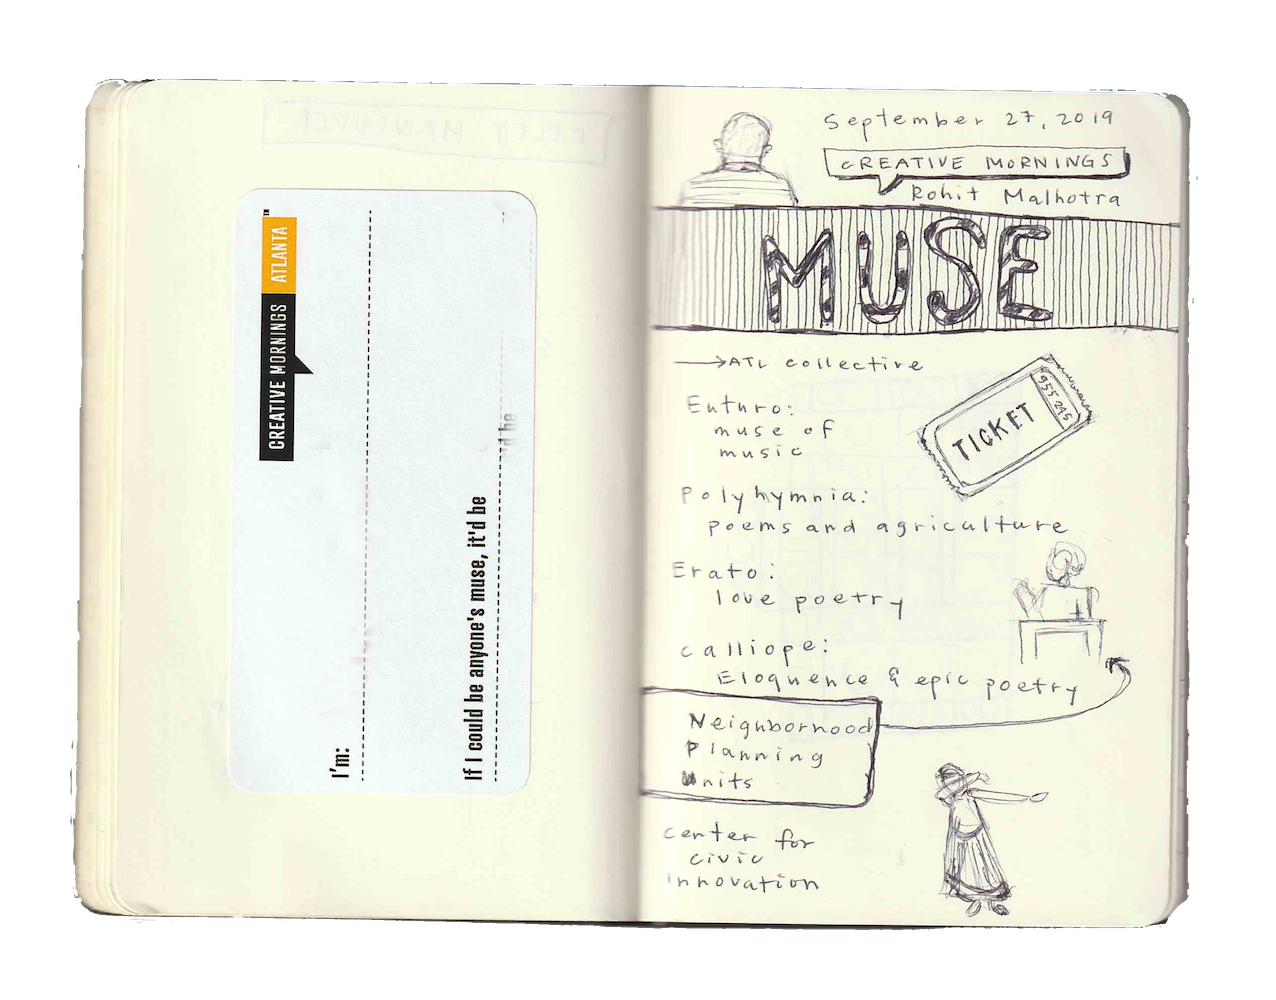 CREATIVE MORNINGS ATLANTA™
I'm:
If I could be anyone's muse, it'd be
September 27, 2019
CREATIVE MORNINGS
Rohit Malhotra
MUSE
→ATL collective
Enturo:
muse of
music
TICKET
955 245
Polyhymnia:
poems and agriculture
Erato:
love poetry
calliope:
Eloquence & epic poetry
Neighborhood
Planning
Units
center for
civic
innovation